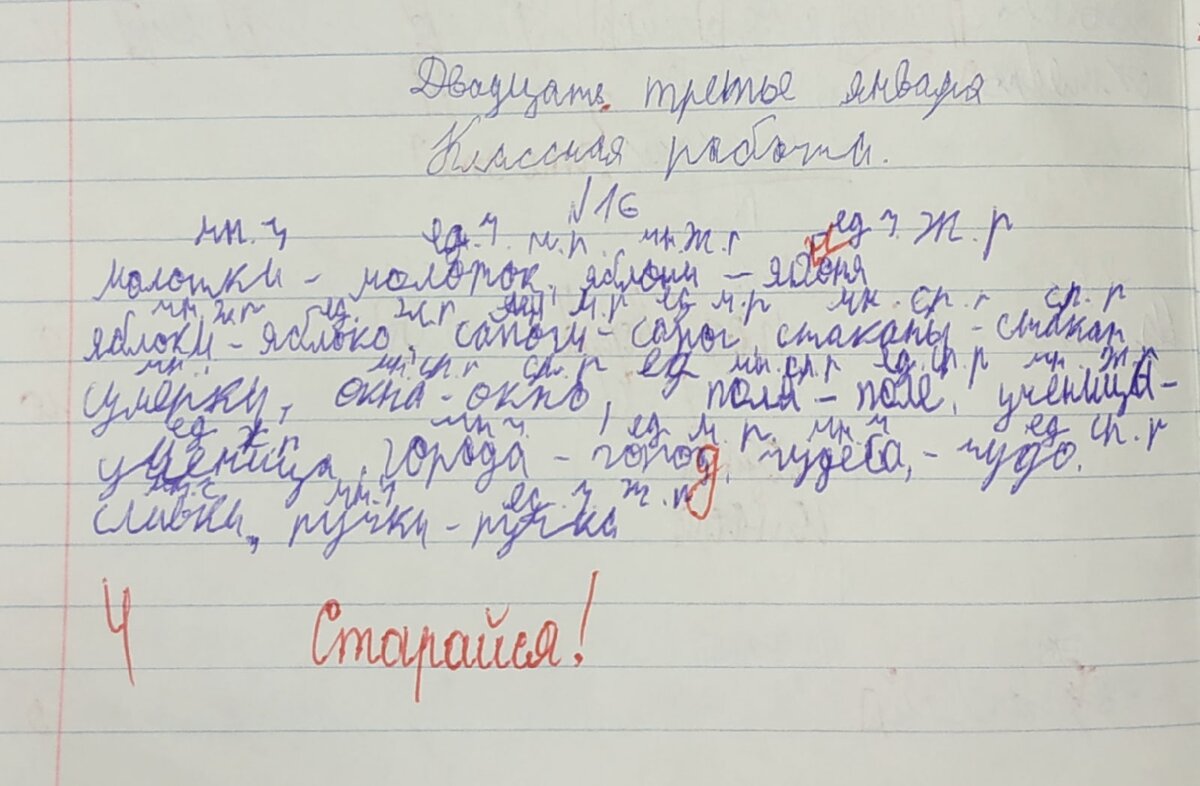 Двадцать третье января
Классная работа.
№16
мн.ч ед.ч. м.р. мн.ж.г ед ч. ж.р
молотки - молоток, яблони - яблоня
мн.ж.г ед. ж.г м.р ед м.р мн. ср.г ср.р
яблоки - яблоко, сапоги - сапог, стаканы - стакан,
мн. мн.ср.г ср.р ед мн.ср.г ед.ср.р мн. ж.р
сумерки, окна - окно, поля - поле, ученицы -
ед ж.г мн ч. ед. м.р. мн.ч ед ср.р
ученица, города - город, чудеса, - чудо.
мн.ч ед. ч ж.р
сливки, ручки - ручка
4 Старайся!